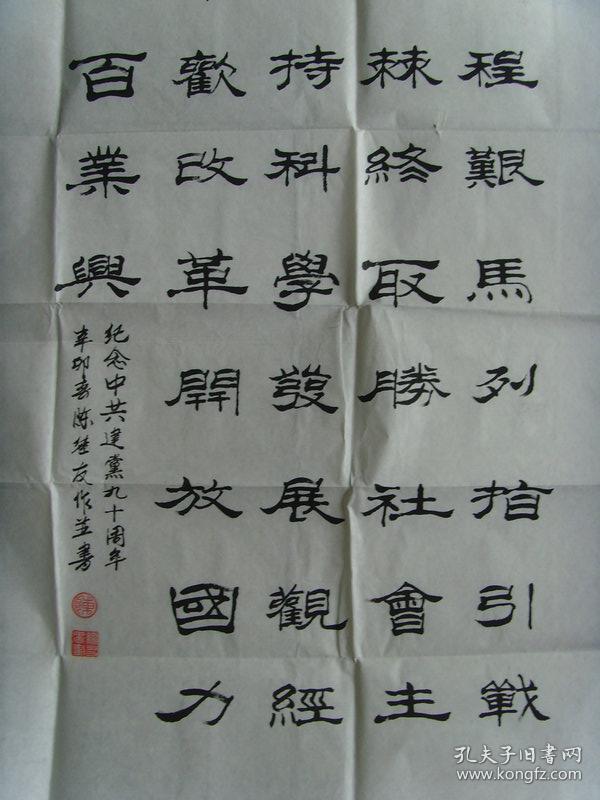 程艱馬列指引戰
棘終取勝社會主
持科學發展觀經
歡改革開放國力
百業興
纪念中共建黨九十周年
辛卯春陈继友作并书
孔夫子旧书网
www.kongfz.com